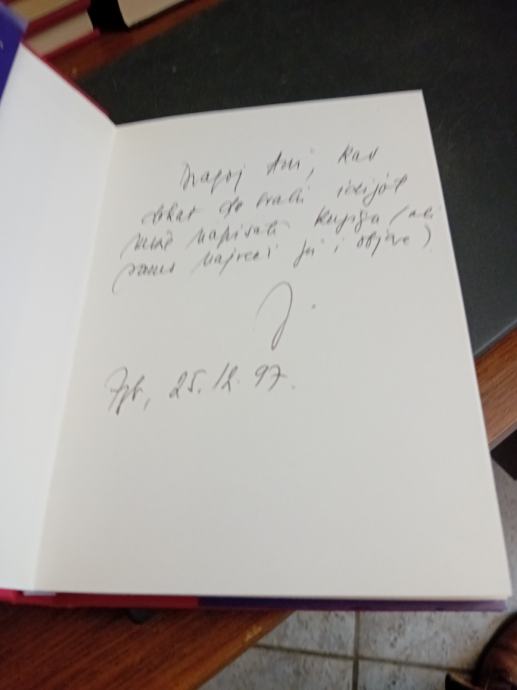 Dragoj Ani, kao
dokaz da svaki idijot
može napisati knjigu (ali
samo najveći ju i objave)
J.
Zgb, 25.12.97.